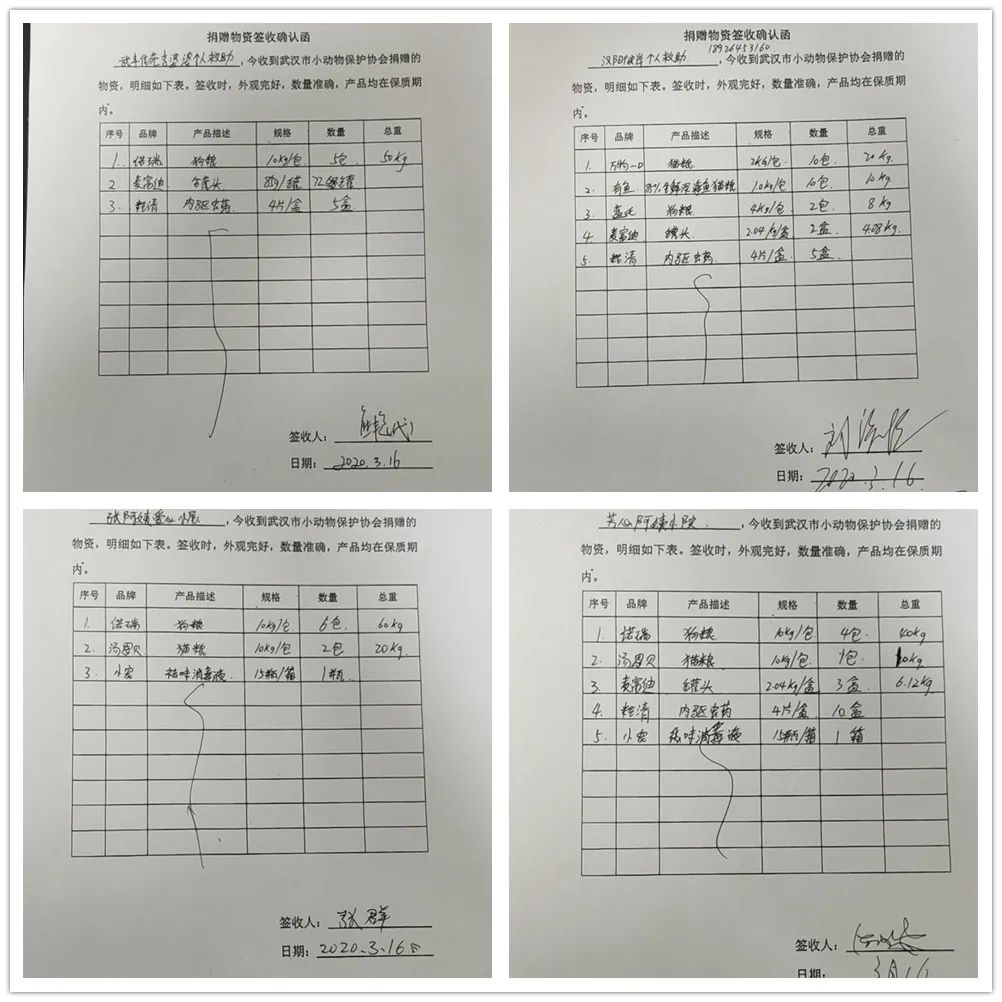 捐赠物资签收确认函
个人救助，今收到武汉市小动物保护协会捐赠的
物资，明细如下表。签收时，外观完好，数量准确，产品均在保质期
内。
序号 品牌 产品描述 规格 数量 总重
1. 诺瑞 狗粮 10kg/包 5包 50kg
2. 麦富迪 罐头 85g/罐 72罐
3. 粒清 内驱虫药 4片/盒 5盒
签收人：
日期：2020.3.16
捐赠物资签收确认函
18926453160
汉阳 个人救助，今收到武汉市小动物保护协会捐赠的
物资，明细如下表。签收时，外观完好，数量准确，产品均在保质期
内。
序号 品牌 产品描述 规格 数量 总重
1. 猫粮 2kg/包 10包 20kg.
2. 有鱼 猫粮 1.0kg/包 10包 10kg
3. 狗粮 4kg/包 2包 8kg
4. 麦富迪 罐头 2.04kg/盒 2盒 4.08kg.
5. 粒清 内驱虫药 4片/盒 5盒
签收人：
日期：2020.3.16
张阿姨爱心小屋，今收到武汉市小动物保护协会捐赠的
物资，明细如下表。签收时，外观完好，数量准确，产品均在保质期
内。
序号 品牌 产品描述 规格 数量 总重
1. 诺瑞 狗粮 10kg/包 6包 60kg
2. 汤恩贝 猫粮 10kg/包 2包 20kg.
3. 小宠 祛味消毒液 15瓶/箱 1瓶
签收人：张群
日期：2020.3.16
阿姨小院，今收到武汉市小动物保护协会捐赠的
物资，明细如下表。签收时，外观完好，数量准确，产品均在保质期
内。
序号 品牌 产品描述 规格 数量 总重
1. 诺瑞 狗粮 10kg/包 4包 40kg
2. 汤恩贝 猫粮 10kg/包 1包 10kg
3. 麦富迪 罐头 2.04kg/盒 3盒 6.12kg
4. 粒清 内驱虫药 4片/盒 10盒
5. 小宠 祛味消毒液 15瓶/箱 1箱
签收人：
日期：3月16